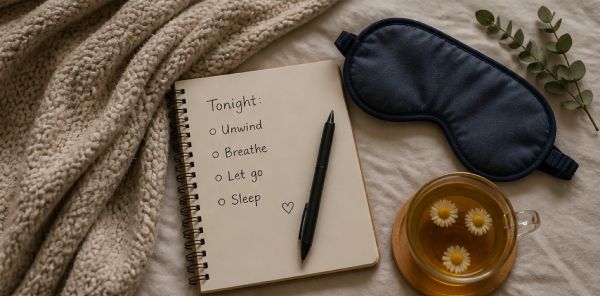 Tonight:
Unwind
Breathe
Let go
Sleep